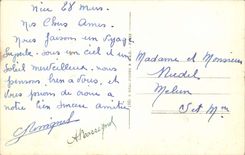 Nice 28 Mars.
Nos Chers Amis.
Nous faisons un voyage
sous un ciel et un
Soleil merveilleux. nous
pensons bien a vous. et
vous prions de croire a
notre très sincère amitié
Madame et Monsieur
Riedel
Melun
S et Mne